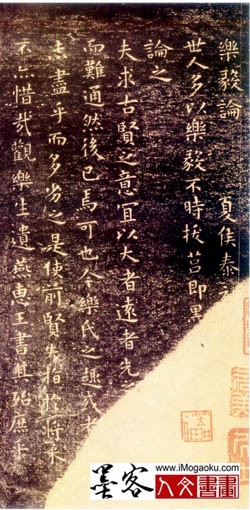 樂毅論 夏侯泰
世人多以樂毅不時拔莒即墨
論之
夫求古賢之意宜以大者遠者先之
而難通然後已焉可也今樂氏之趣或者
盡乎而多劣之是使前賢失指於將來
不亦惜哉觀樂生遺燕惠王書其殆庶乎
墨客
www.iMogaoku.com
人文書畫